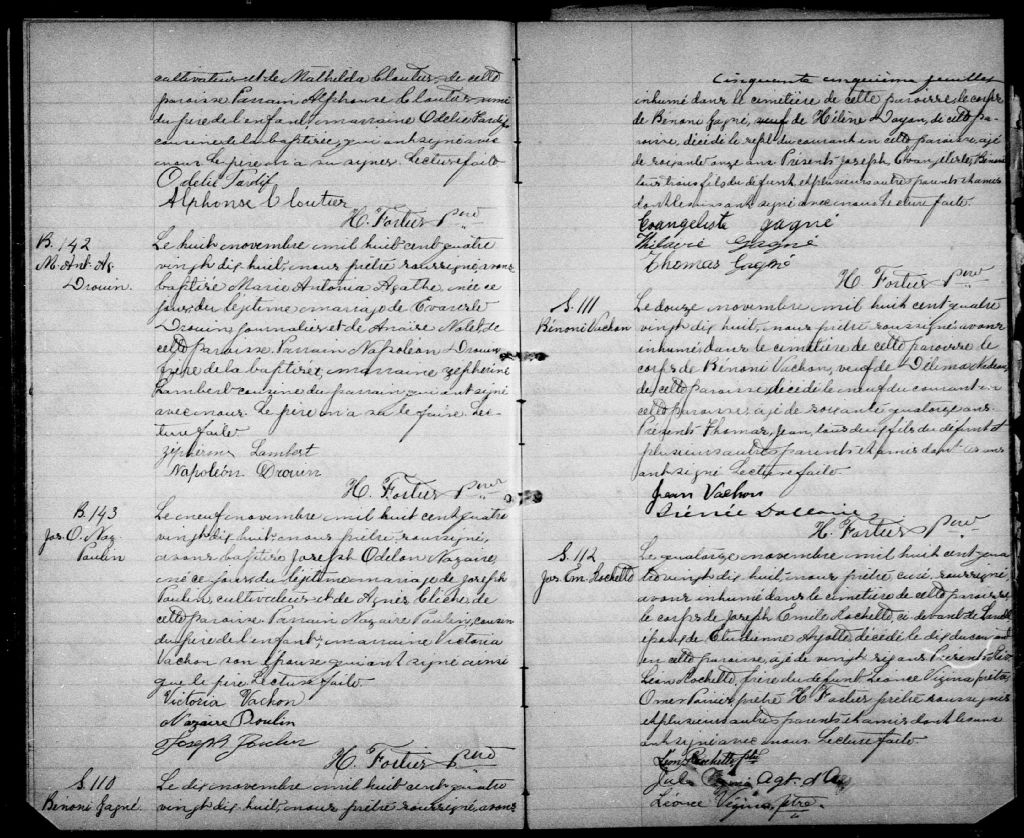 cultivateur et de Mathilda Cloutier, de cette
paroisse Parrain Alphonse Cloutier ami
du pere de l'enfant, marraine Odelie Tardif
cousine de la baptisée, qui ont signé avec
nous Le père n'a su signer. Lecture faite
Odelie Tardif
Alphonse Cloutier
H. Fortier ptre
B. 142
M. Ant. Ag.
Drouin.
Le huit novembre mil huit cent quatre
vingt dix huit, nous prêtre soussigné, avons
baptisé Marie Antonia Agathe née ce
jour, du légitime mariage de Evariste
Drouin, journalier et de Anaise Nolet de
cette paroisse. Parrain Napoléon Drouin
frère de la baptisée, marraine Zepherine
Lambert cousine du parrain, qui ont signé
avec nous. Le père n'a su le faire. Lec-
ture faite
Zépherine Lambert
Napoléon Drouin
H. Fortier ptre
B. 143
Jos. O. Naz.
Poulin
Le neuf novembre mil huit cent quatre
vingt dix huit, nous prêtre, soussigné,
avons baptisé Joseph Odelon Nazaire,
né ce jour, du légitime mariage de Joseph
Poulin, cultivateur et de Agnès Cliche, de
cette paroisse Parrain Nazaire Poulin, cousin
du père de l'enfant, marraine Victoria
Vachon son épouse qui ont signé ainsi
que le père Lecture faite
Victoria Vachon
Nazaire Poulin
Joseph Poulin
H. Fortier ptre
S. 110
Bénoni Gagné.
Le dix novembre mil huit cent quatre
vingt dix huit, nous prêtre soussigné, avons
Cinquante cinquième feuillet
inhumé dans le cimetière de cette paroisse le corps
de Bénoni Gagné, veuf de Hélène Doyon, de cette pa-
roisse, décédé le sept du courant en cette paroisse, âgé
de soixante onze ans Présents Joseph, Evangeliste, Bénoni
tous trois fils du défunt et plusieurs autres parents et amis
dont les uns ont signé avec nous Lecture faite.
Evangeliste Gagné
Gagné
Thomas Gagné
H. Fortier ptre
S. 111
Bénoni Vachon
Le douze novembre mil huit cent quatre
vingt dix huit, nous prêtre soussigné, avons
inhumé dans le cimetière de cette paroisse le
corps de Bénoni Vachon, veuf de Délima Nadeau,
de cette paroisse, décédé le neuf du courant en
cette paroisse, âgé de soixante quatorze ans.
Présents Thomas, Jean, tous deux fils du défunt et
plusieurs autres parents et amis dont les uns
ont signé Lecture faite
Jean Vachon
Irénée Dallaire
H. Fortier ptre
S. 112
Jos. Em. Rochette
Le quatorze novembre mil huit cent qua-
tre vingt dix huit, nous prêtre, curé soussigné
avons inhumé dans le cimetière de cette paroisse
le corps de Joseph Emile Rochette, ci devant de
époux de Ayotte, décédé le dix du courant
en cette paroisse, âgé de vingt six ans Présents
Léon Rochette, frère du défunt Léonce Vézina prêtre,
Omer Poirier prêtre H Fortier prêtre soussigné
et plusieurs autres parents et amis dont les uns
ont signé avec nous Lecture faite.
Léon Rochette
Jules
Léonce Vézina, ptre.